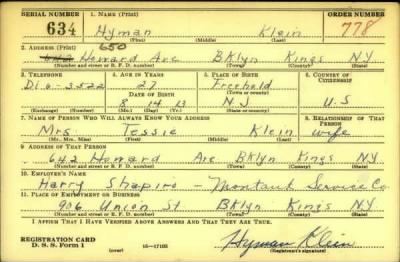 SERIAL NUMBER 1. NAME (Print) ORDER NUMBER
634 Hyman Klein 778
(First) (Middle) (Last)
2. ADDRESS (Print) 650
642 Howard Ave BKlyn Kings NY
(Number and street or R. F. D. number) (Town) (County) (State)
3. TELEPHONE 4. AGE IN YEARS 5. PLACE OF BIRTH 6. COUNTRY OF CITIZENSHIP
Di. 6-3522 27 Freehold
(Town or county)
DATE OF BIRTH
8 14 13 N J U.S
(Exchange) (Number) (Mo.) (Day) (Yr.) (State or country)
7. NAME OF PERSON WHO WILL ALWAYS KNOW YOUR ADDRESS 8. RELATIONSHIP OF THAT PERSON
Mrs Tessie Klein wife
(Mr., Mrs., Miss) (First) (Middle) (Last)
9. ADDRESS OF THAT PERSON
642 Howard Ave BKlyn Kings NY
(Number and street or R. F. D. number) (Town) (County) (State)
10. EMPLOYER'S NAME
Harry Shapiro - Montauk Service Co
11. PLACE OF EMPLOYMENT OR BUSINESS
906 Union St BKlyn Kings NY
(Number and street or R. F. D. number) (Town) (County) (State)
I AFFIRM THAT I HAVE VERIFIED ABOVE ANSWERS AND THAT THEY ARE TRUE.
REGISTRATION CARD
D. S. S. Form 1 (over) 16-17105 Hyman Klein
(Registrant's signature)